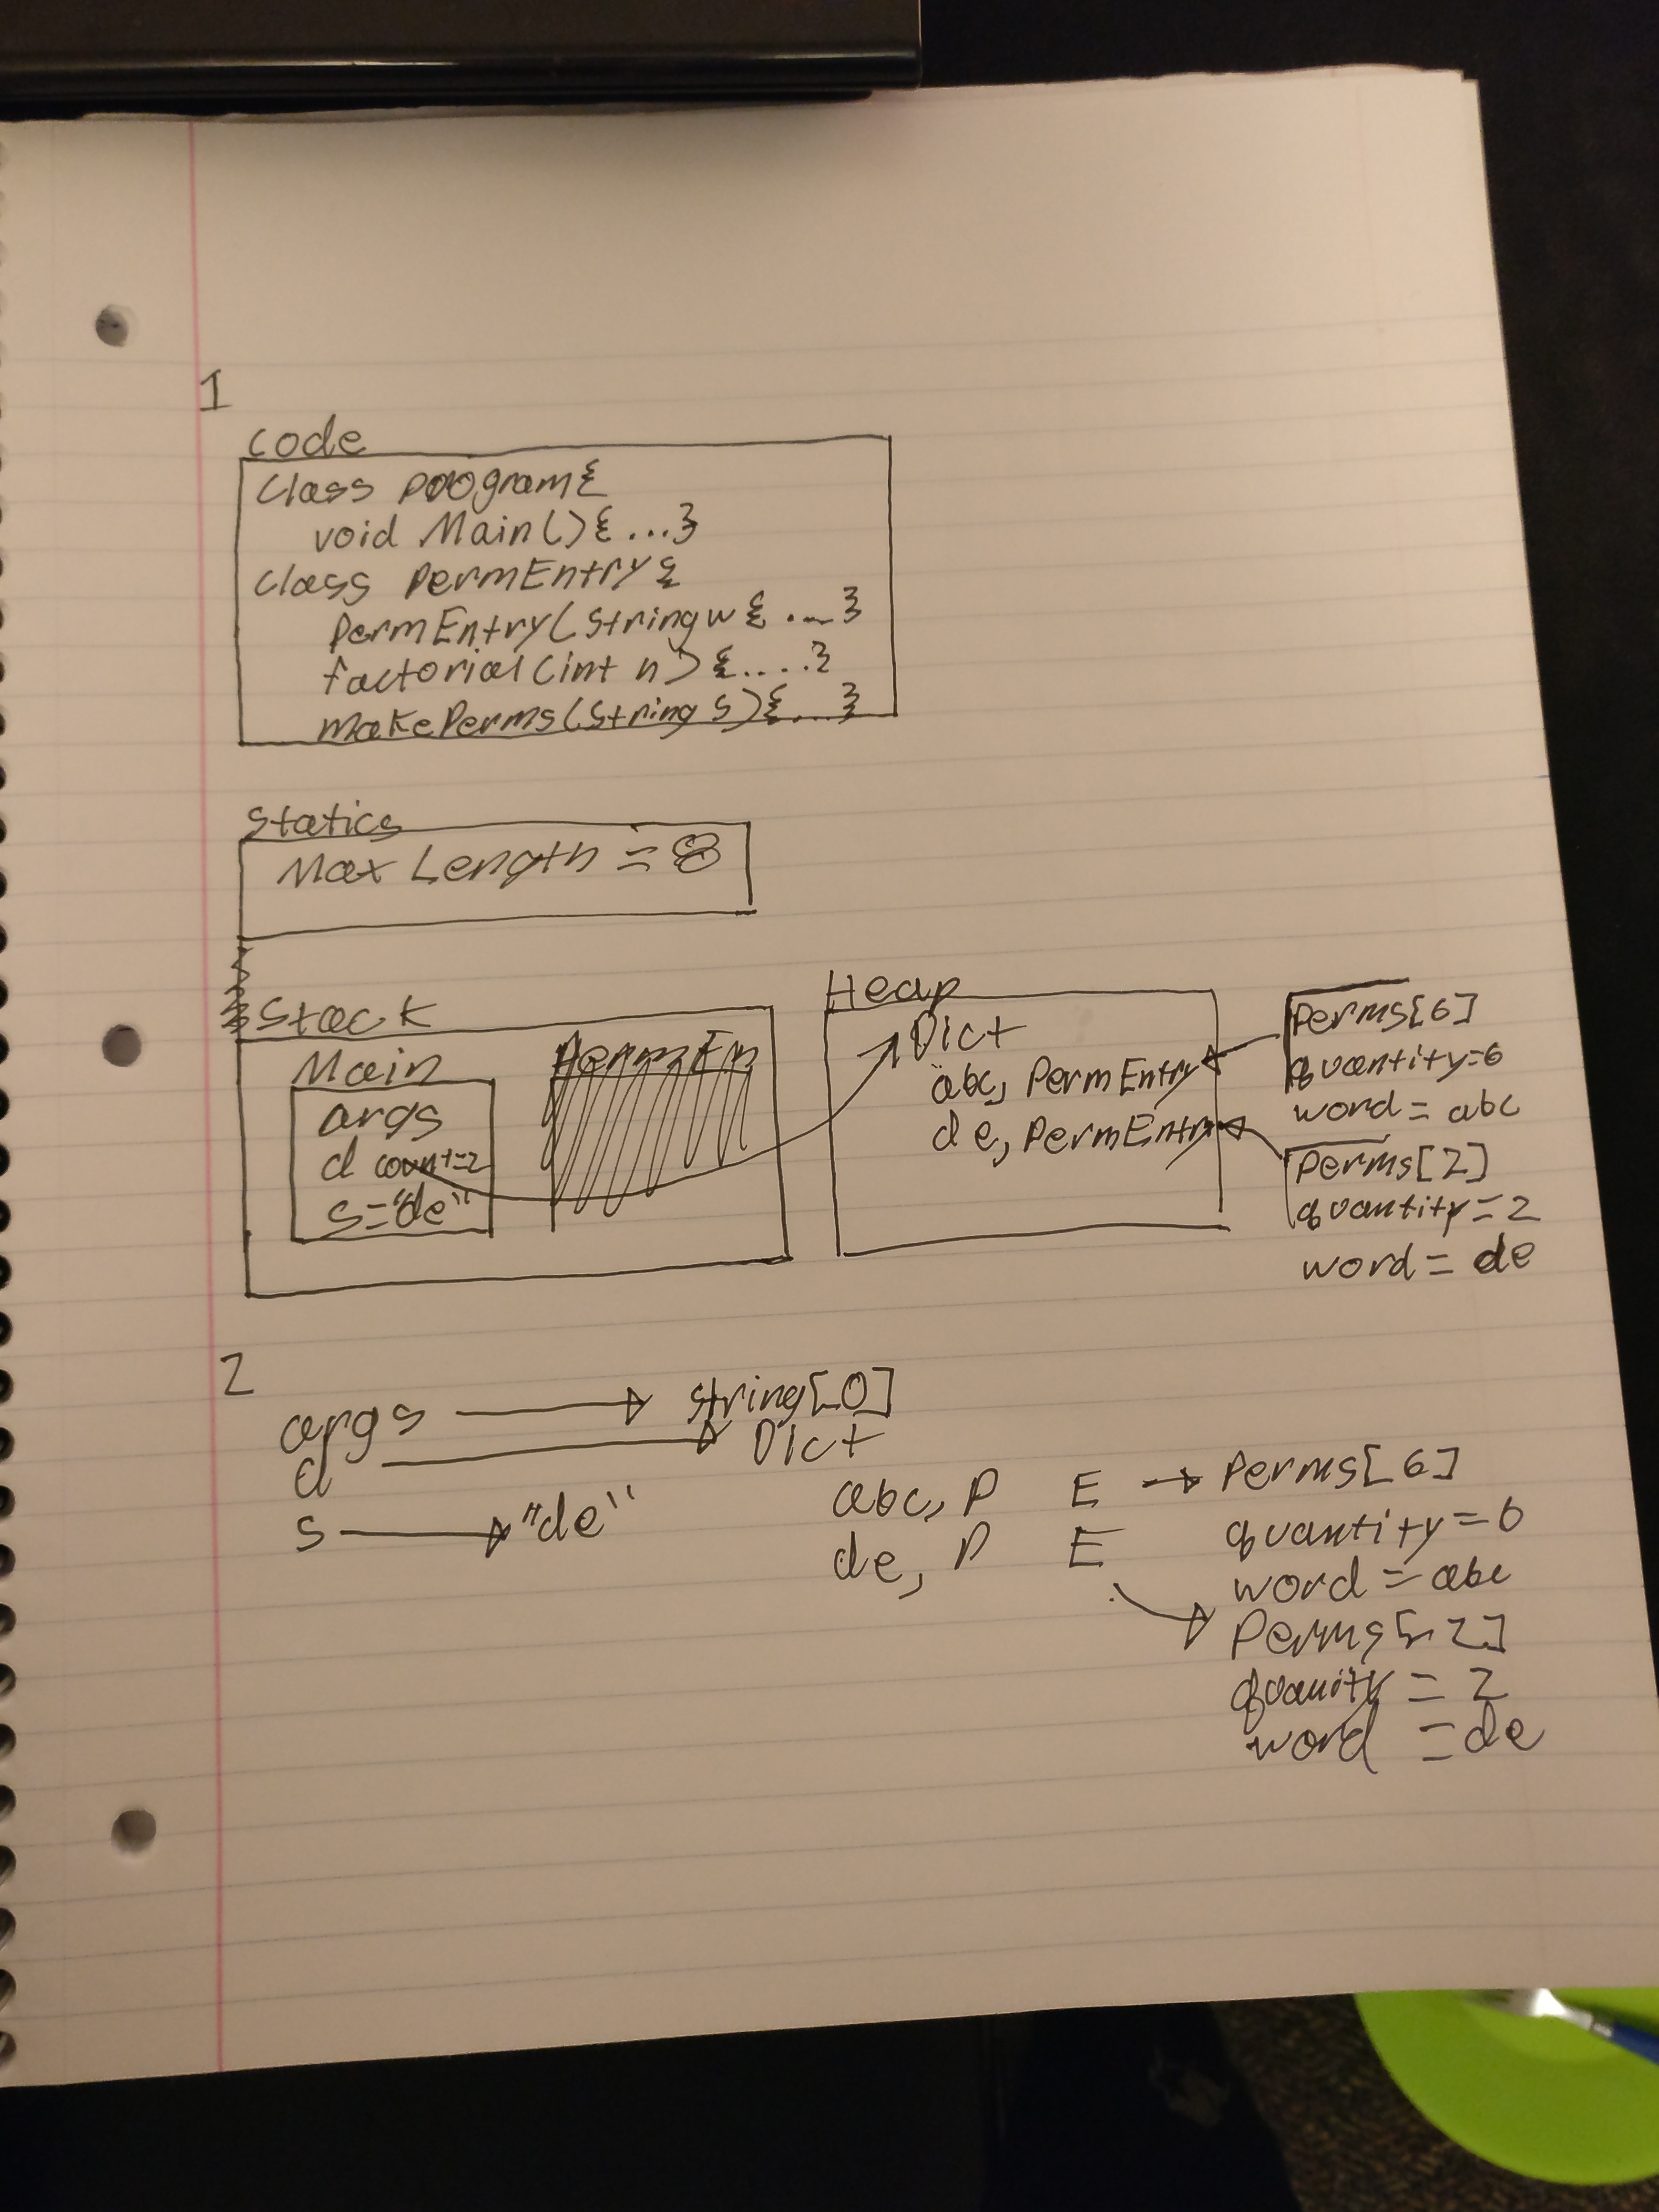 1
code
class program{
void Main(){...}
class PermEntry{
PermEntry(String w{...}
factorial(int n){....}
makePerms(String s){...}
Statics
Max Length = 8
Stack
Main
args
d count=2
s="de"
PermEn
Heap
Dict
abc, PermEntry
de, PermEntry
Perms[6]
quantity=6
word = abc
Perms[2]
quantity=2
word = de
2
args string[0]
d Dict
s "de"
abc, P E Perms[6]
quantity=6
word = abc
de, P E
Perms[2]
quanity = 2
word = de